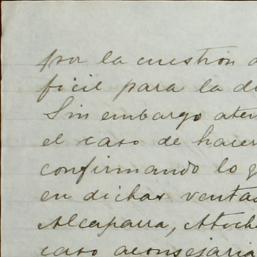 por la cuestion d
ficil para la d
Sin embargo aten
el caso de hacer
confirmando lo q
en dichas ventas
Alcaparra, Atoch
caso aconsejaria